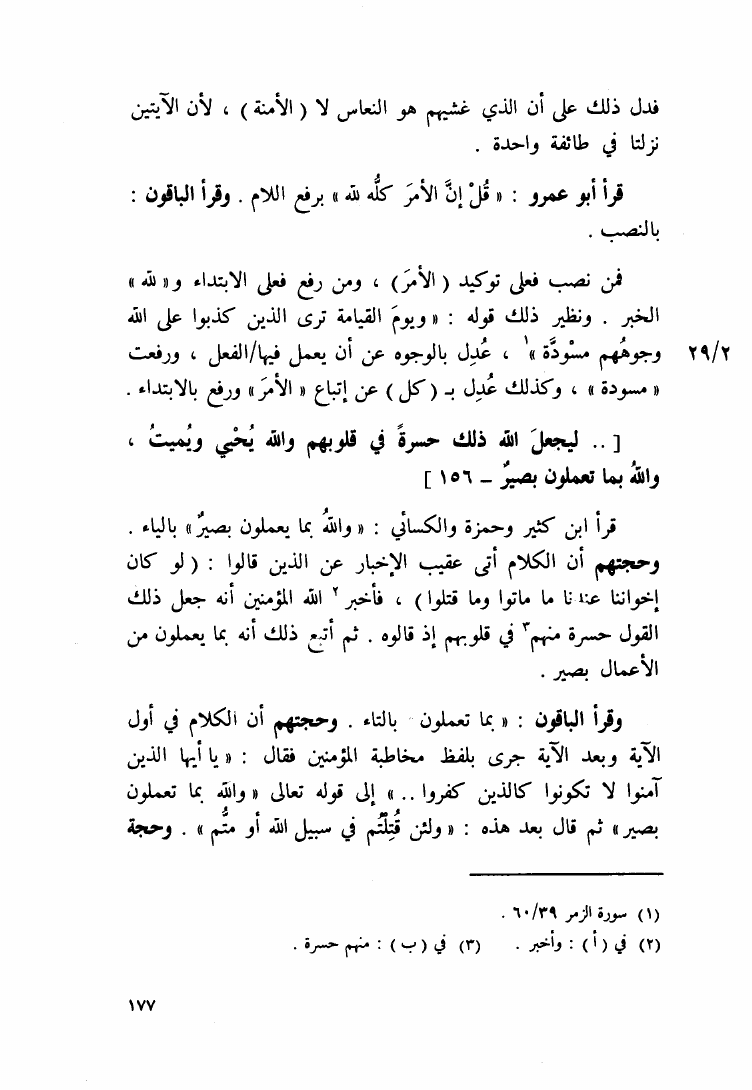 فدل ذلك على أن الذي غشيهم هو النعاس لا ( الأمنة ) ، لأن الآيتين
نزلتا في طائفة واحدة .
قرأ أبو عمرو : « قُلْ إنَّ الأمرَ كلُّه لله » برفع اللام . وقرأ الباقون :
بالنصب .
فمن نصب فعلى توكيد ( الأمرَ ) ، ومن رفع فعلى الابتداء و« لله »
الخبر . ونظير ذلك قوله : « ويومَ القيامة ترى الذين كذبوا على الله
وجوهُهم مسْودَّة »¹ ، عُدِل بالوجوه عن أن يعمل فيها/الفعل ، ورفعت
٢٩/٢
« مسودة » ، وكذلك عُدِل بـ ( كل ) عن إتباع « الأمرَ » ورفع بالابتداء .
[ .. ليجعلَ الله ذلك حسرةً في قلوبهم والله يُحْيي ويُميتُ ،
واللهُ بما تعملون بصيرٌ – ١٥٦ ]
قرأ ابن كثير وحمزة والكسائي : « واللهُ بما يعملون بصيرٌ » بالياء .
وحجتهم أن الكلام أتى عقيب الإخبار عن الذين قالوا : ( لو كان
إخواننا عندنا ما ماتوا وما قتلوا ) ، فأخبر ٢ الله المؤمنين أنه جعل ذلك
القول حسرة منهم٣ في قلوبهم إذ قالوه . ثم أتبع ذلك أنه بما يعملون من
الأعمال بصير .
وقرأ الباقون : « بما تعملون بالتاء . وحجتهم أن الكلام في أول
الآية وبعد الآية جرى بلفظ مخاطبة المؤمنين فقال : « يا أيها الذين
آمنوا لا تكونوا كالذين كفروا .. » إلى قوله تعالى « والله بما تعملون
بصير » ثم قال بعد هذه : « ولئن قُتِلْتُم في سبيل الله أو متُّم » . وحجة
(١) سورة الزمر ٦٠/٣٩ .
(٢) في ( أ ) : وأخبر . (٣) في ( ب ) : منهم حسرة .
١٧٧